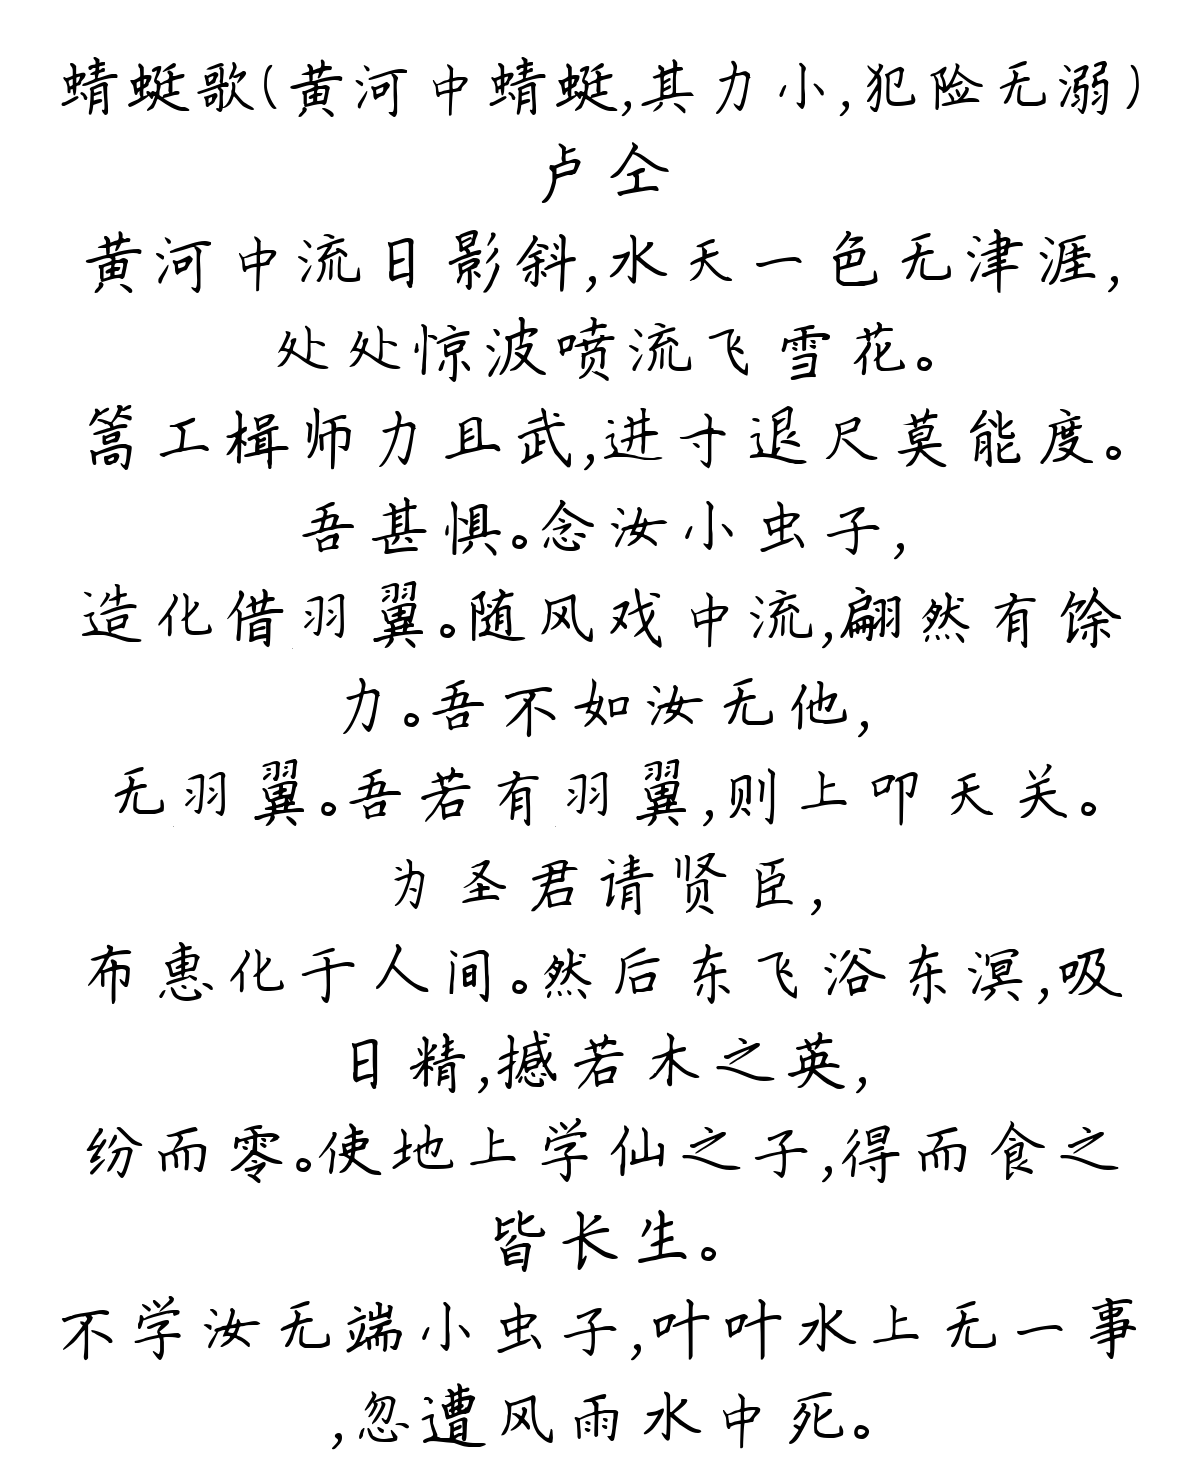 蜻蜓歌(黄河中蜻蜓,其力小,犯险无溺)
卢仝
黄河中流日影斜,水天一色无津涯,
处处惊波喷流飞雪花。
篙工楫师力且武,进寸退尺莫能度。
吾甚惧。念汝小虫子,
造化借羽翼。随风戏中流,翩然有馀
力。吾不如汝无他,
无羽翼。吾若有羽翼,则上叩天关。
为圣君请贤臣,
布惠化于人间。然后东飞浴东溟,吸
日精,撼若木之英,
纷而零。使地上学仙之子,得而食之
皆长生。
不学汝无端小虫子,叶叶水上无一事
,忽遭风雨水中死。